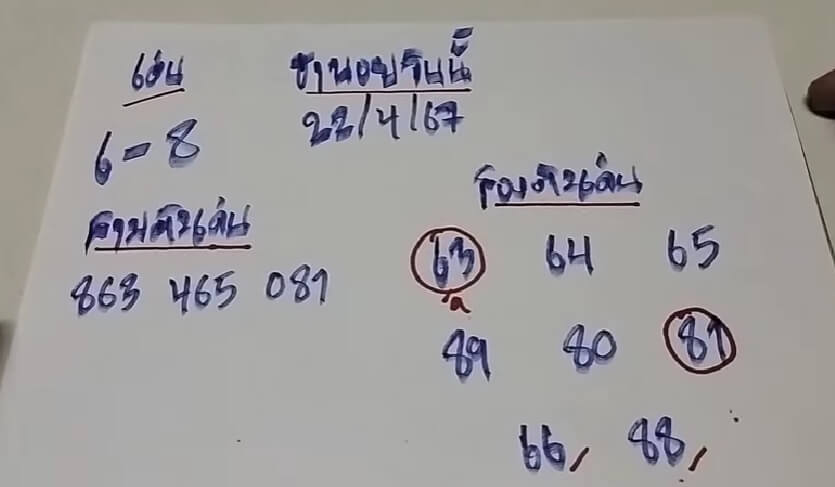 เด่น
ฮานอยวันนี้
22/4/67
6-8
สามตัวเด่น
863 465 081
สองตัวเด่น
63 64 65
89 80 81
66, 88,